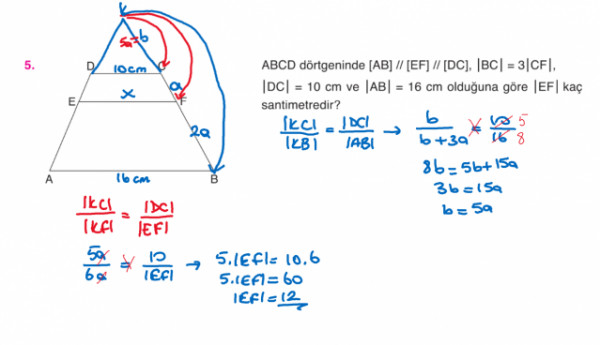 5.
ABCD dörtgeninde [AB] // [EF] // [DC], |BC| = 3|CF|,
|DC| = 10 cm ve |AB| = 16 cm olduğuna göre |EF| kaç
santimetredir?
K
5a=b
D 10cm C
a
E x F
2a
A 16cm B
|KC|/|KB| = |DC|/|AB| → b/(b+3a) = 10/16 5/8
8b=5b+15a
3b=15a
b=5a
|KC|/|KF| = |DC|/|EF|
5a/6a = 10/|EF| → 5.|EF|=10.6
5.|EF|=60
|EF|=12